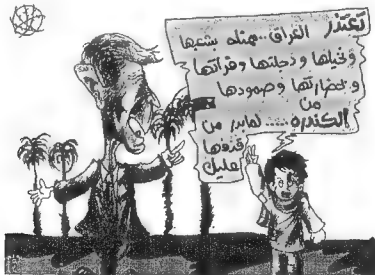 تعتذر العراق.. ممثله بشعبها
ونخيلها ودجلتها وفراتها
وبحضارتها وصمودها
من
الكندره..... لما بدر من
قذفها
عليك